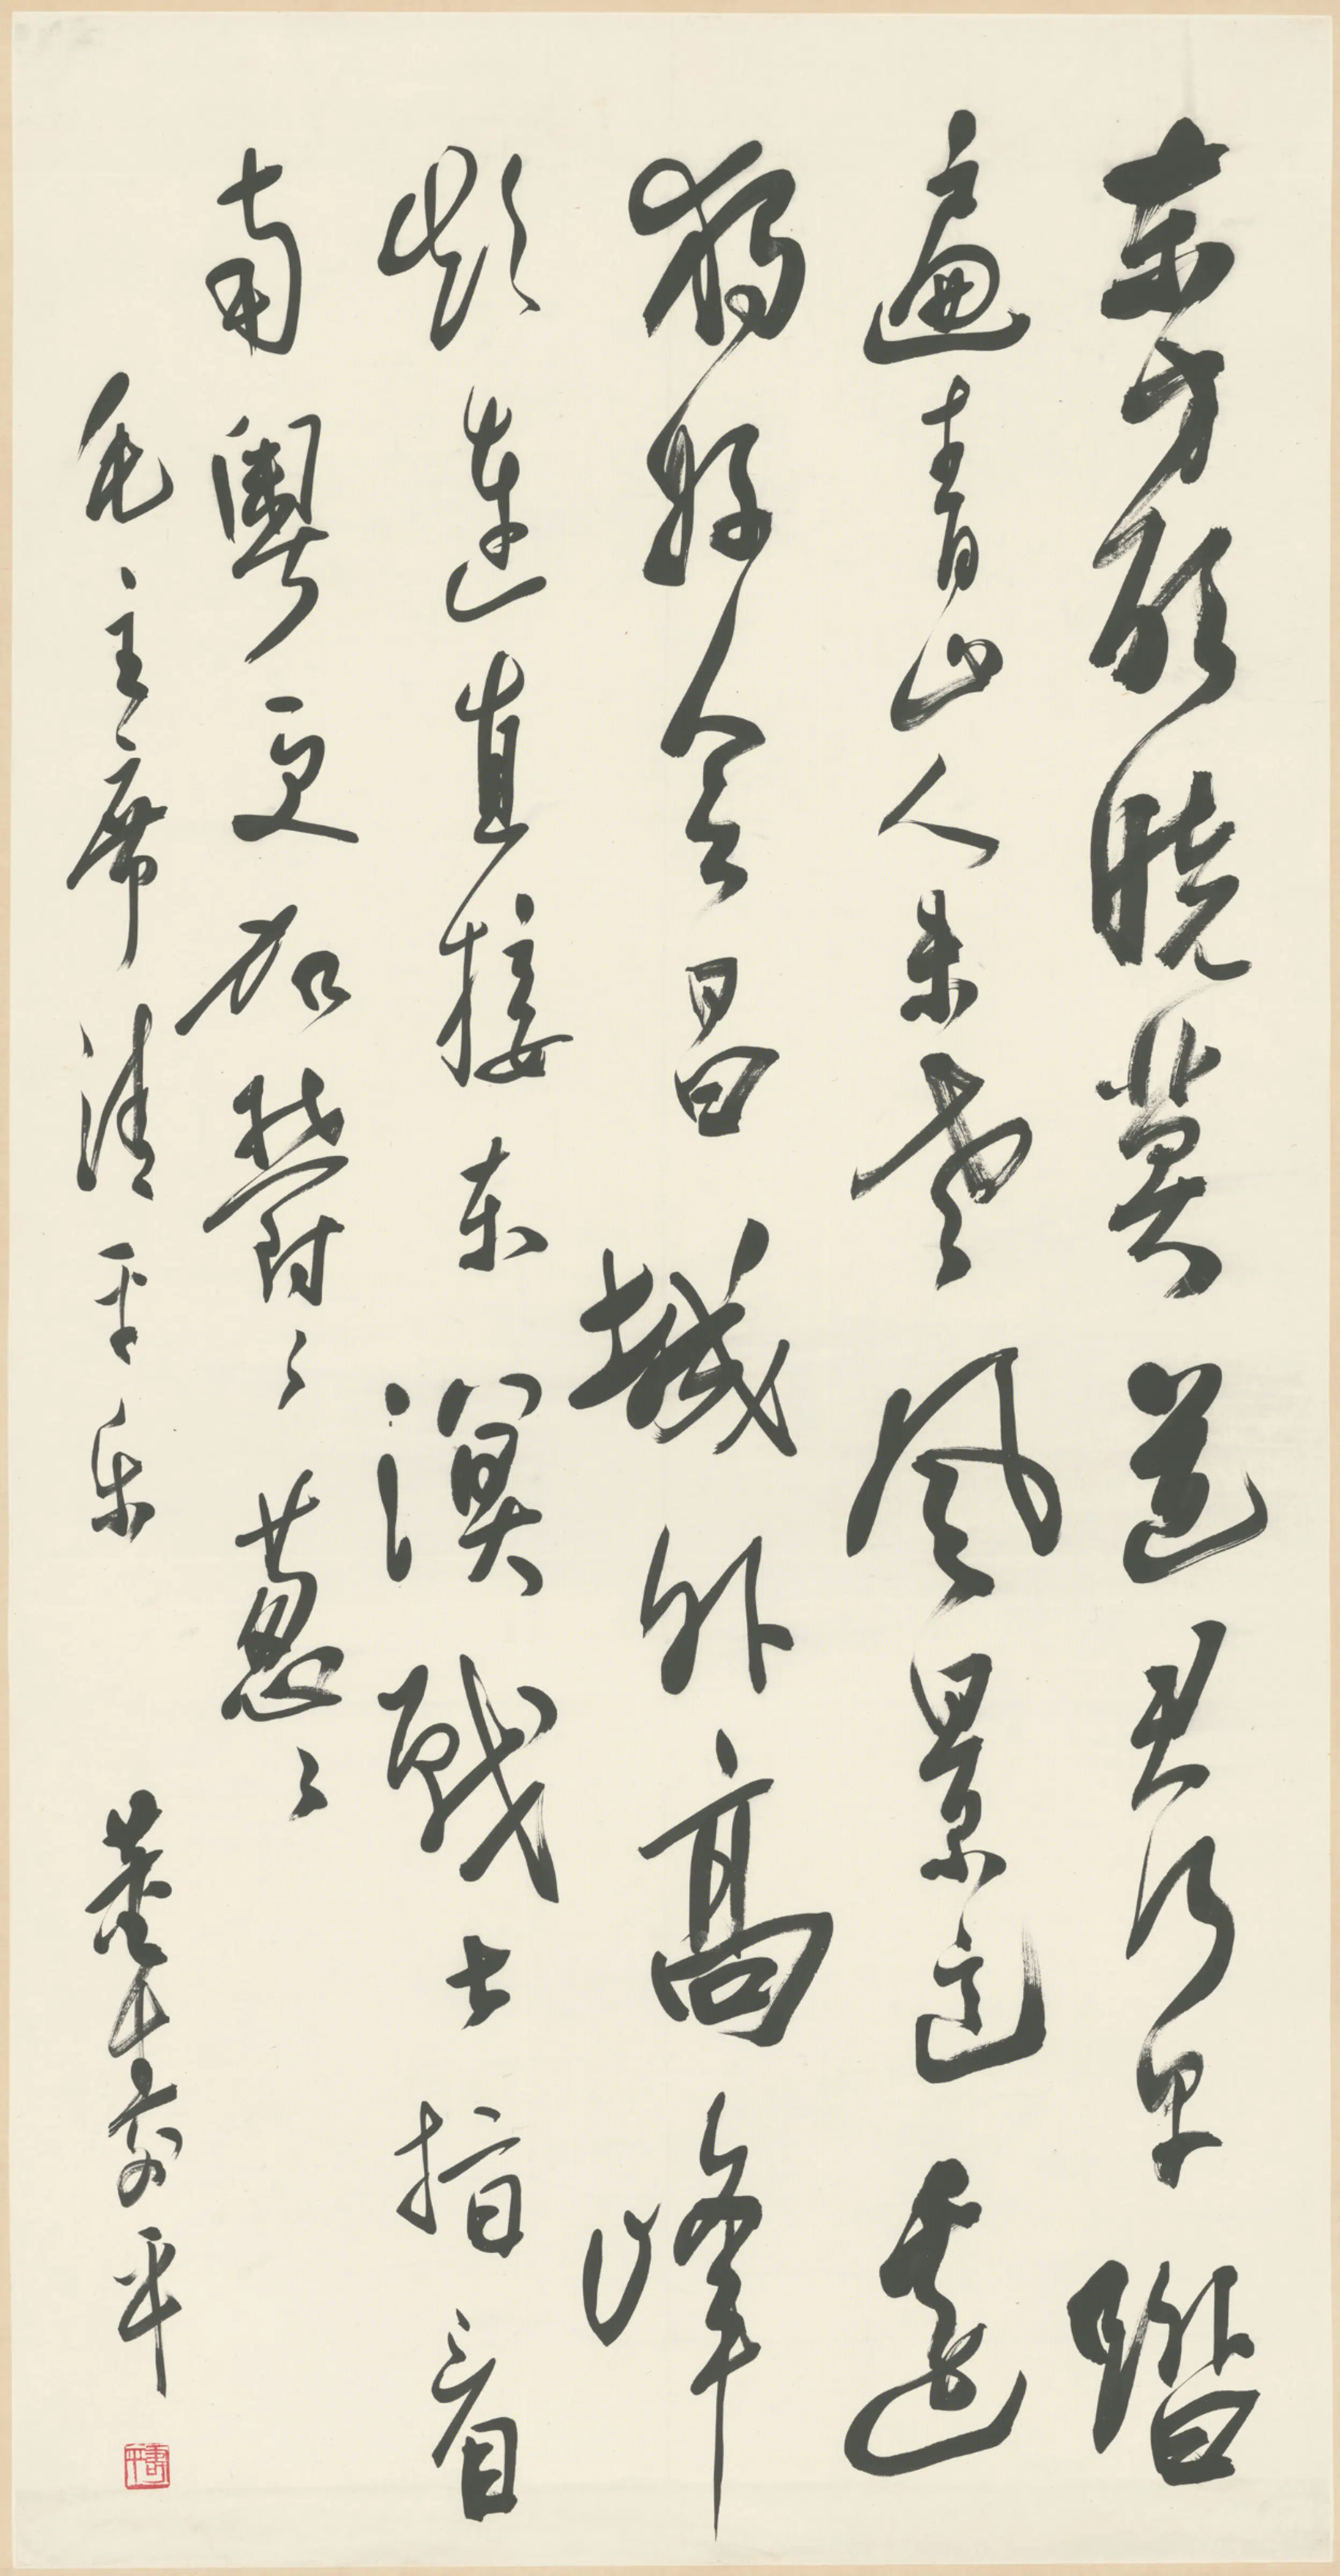 东方欲晓莫道君行早踏
遍青山人未老风景这边
独好会昌城外高峰
颠连直接东溟战士指看
南粤更加郁々葱々
毛主席清平乐 董寿平
寿平